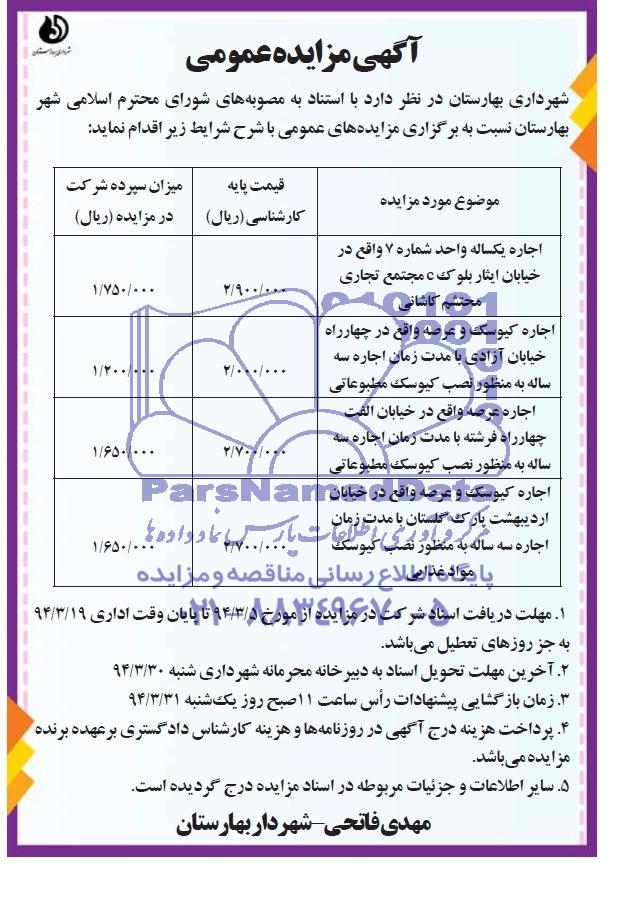 شهرداری بهارستان
آگهی مزایده عمومی
شهرداری بهارستان در نظر دارد با استناد به مصوبه‌های شورای محترم اسلامی شهر
بهارستان نسبت به برگزاری مزایده‌های عمومی با شرح شرایط زیر اقدام نماید:
موضوع مورد مزایده
قیمت پایه
کارشناسی (ریال)
میزان سپرده شرکت
در مزایده (ریال)
اجاره یکساله واحد شماره ۷ واقع در
خیابان ایثار بلوک c مجتمع تجاری
محتشم کاشانی
۲/۹۰۰/۰۰۰
۱/۷۵۰/۰۰۰
اجاره کیوسک و عرصه واقع در چهارراه
خیابان آزادی با مدت زمان اجاره سه
ساله به منظور نصب کیوسک مطبوعاتی
۲/۰۰۰/۰۰۰
۱/۲۰۰/۰۰۰
اجاره عرصه واقع در خیابان الفت
چهارراه فرشته با مدت زمان اجاره سه
ساله به منظور نصب کیوسک مطبوعاتی
۲/۷۰۰/۰۰۰
۱/۶۵۰/۰۰۰
اجاره کیوسک و عرصه واقع در خیابان
اردیبهشت پارک گلستان با مدت زمان
اجاره سه ساله به منظور نصب کیوسک
مواد غذایی
۲/۷۰۰/۰۰۰
۱/۶۵۰/۰۰۰
ParsNamadData
مرکز فرآوری اطلاعات پارس نماد داده‌ها
پایگاه اطلاع رسانی مناقصه و مزایده
۰۲۱-۸۸۳۴۹۶۷۰-۵
۱. مهلت دریافت اسناد شرکت در مزایده از مورخ ۹۴/۳/۵ تا پایان وقت اداری ۹۴/۳/۱۹
به جز روزهای تعطیل می‌باشد.
۲. آخرین مهلت تحویل اسناد به دبیرخانه محرمانه شهرداری شنبه ۹۴/۳/۳۰
۳. زمان بازگشایی پیشنهادات رأس ساعت ۱۱ صبح روز یک‌شنبه ۹۴/۳/۳۱
۴. پرداخت هزینه درج آگهی در روزنامه‌ها و هزینه کارشناس دادگستری برعهده برنده
مزایده می‌باشد.
۵. سایر اطلاعات و جزئیات مربوطه در اسناد مزایده درج گردیده است.
مهدی فاتحی-شهردار بهارستان